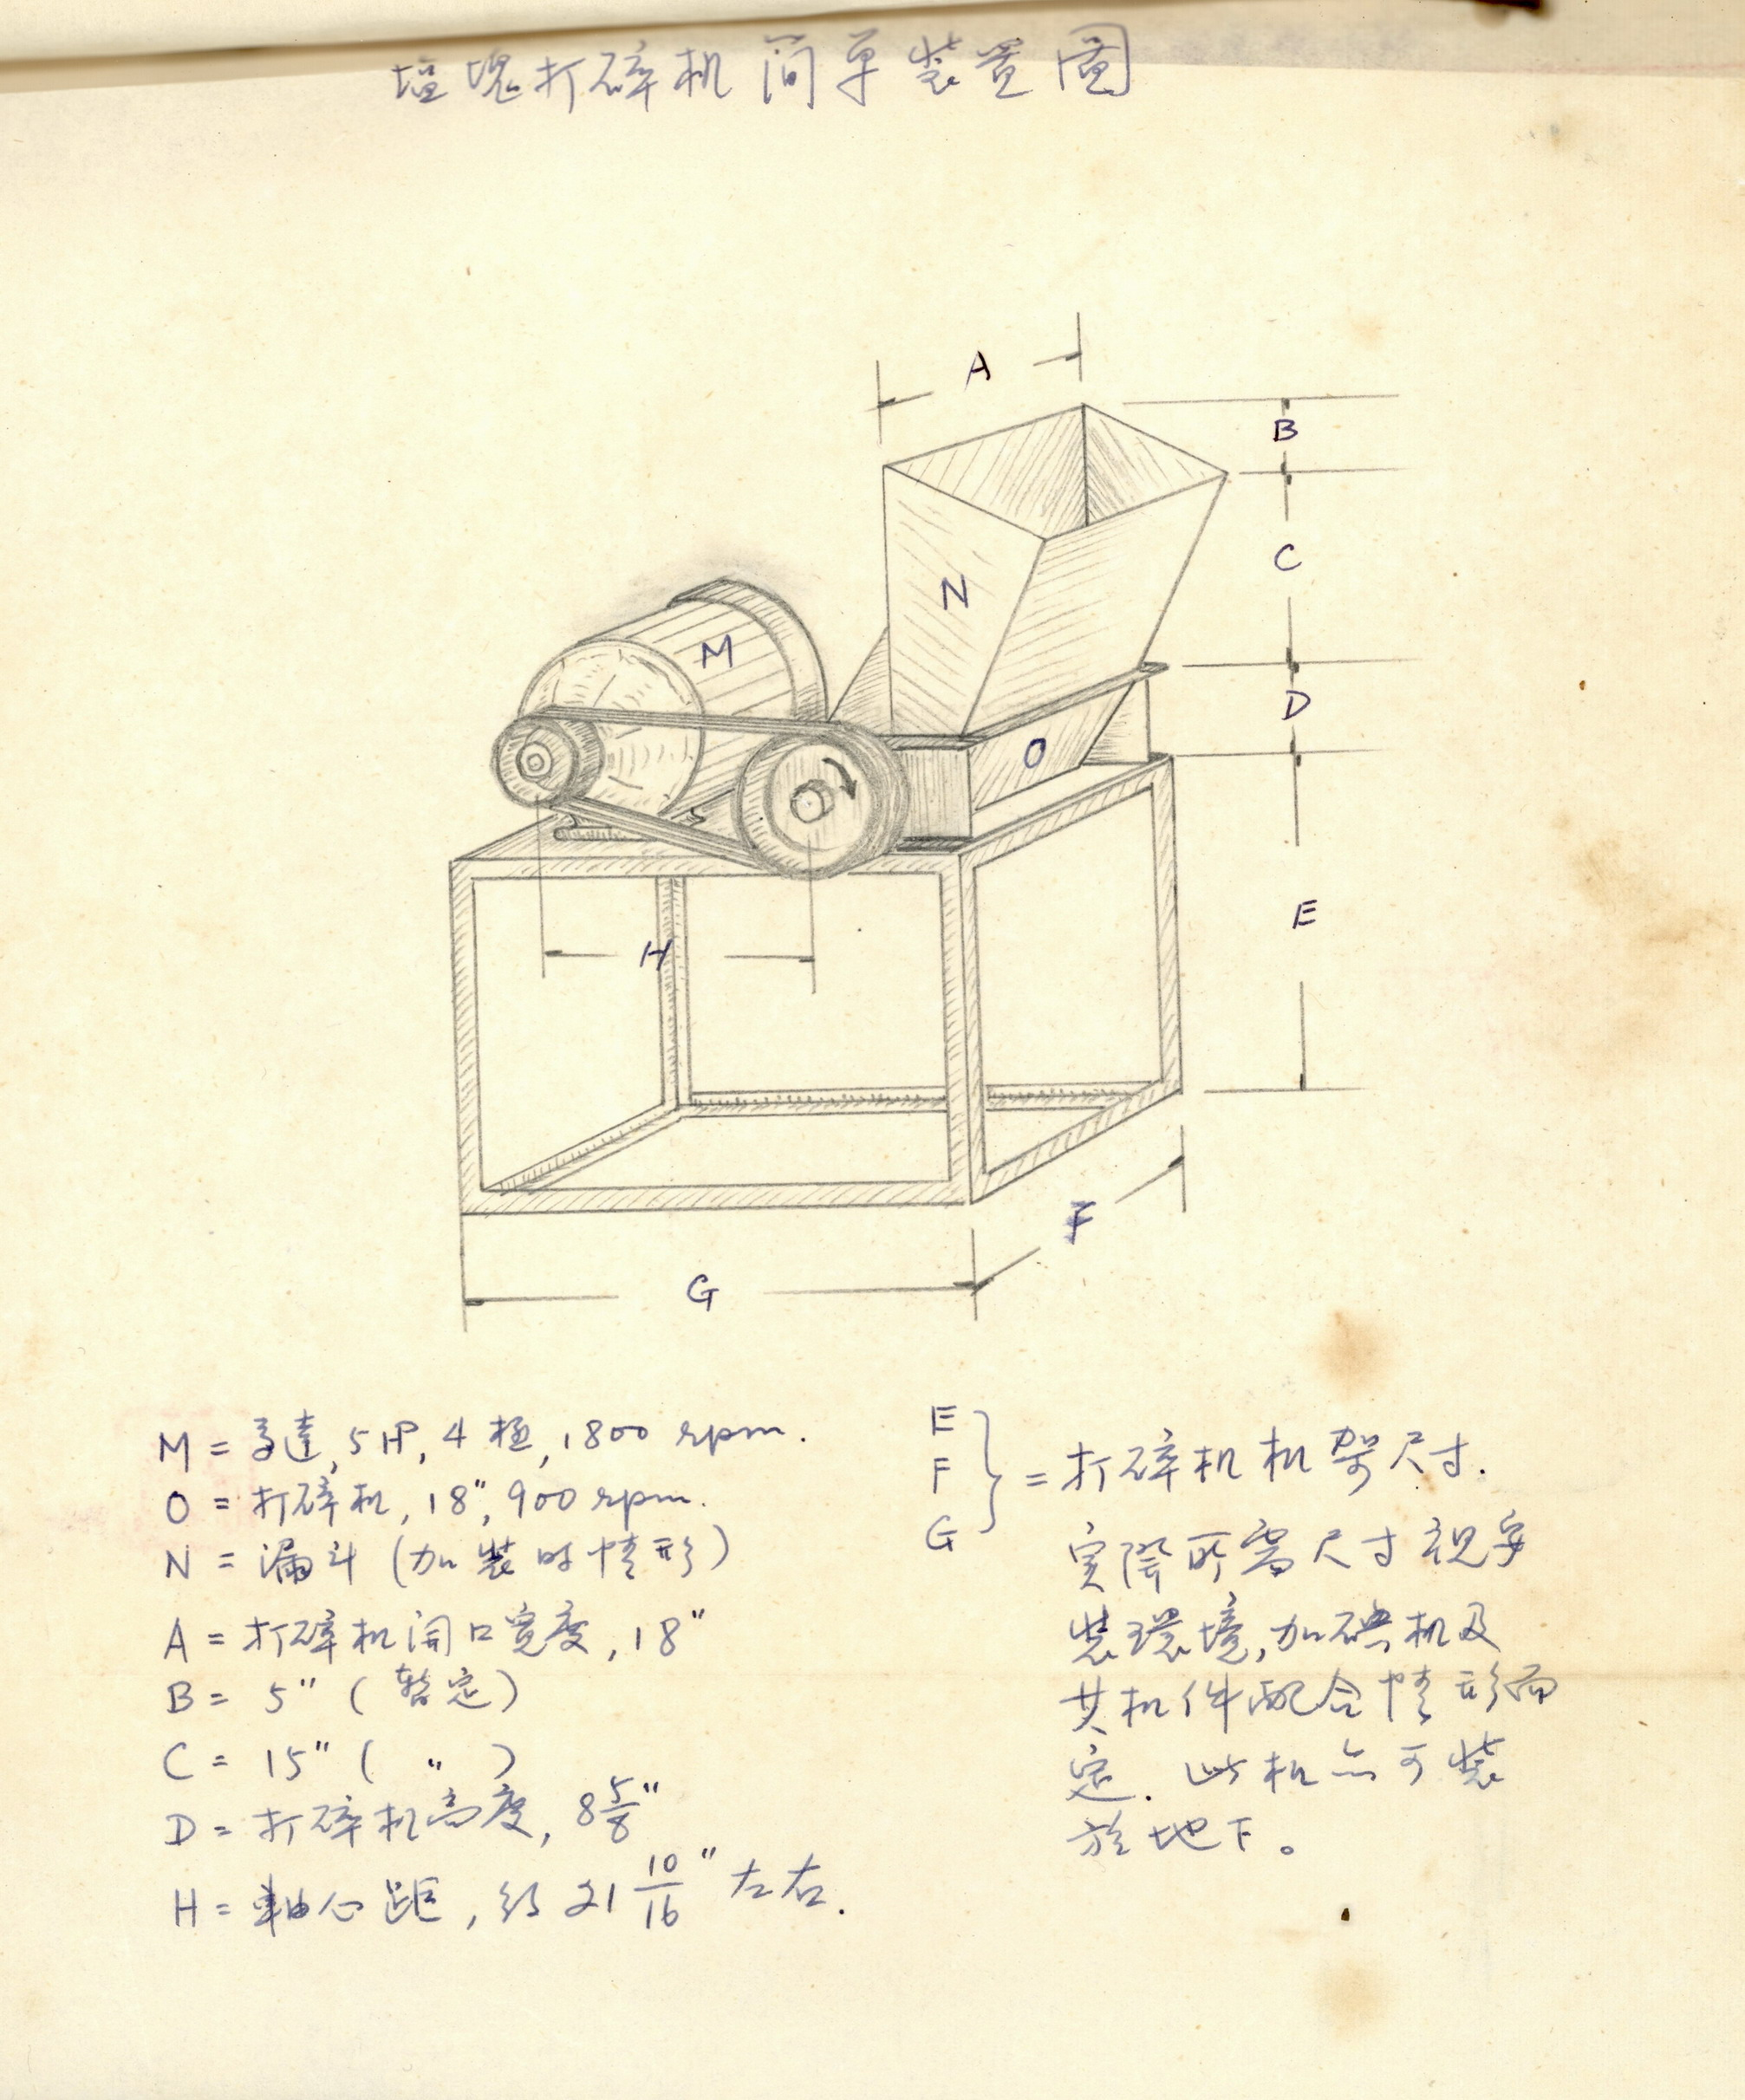 塩塊打碎机简单装置圖
A
B
C
N
M
D
O
E
H
F
G
M = 马達, 5 HP, 4 極, 1800 rpm.
O = 打碎机, 18", 900 rpm.
N = 漏斗 (加装时情形)
A = 打碎机開口宽度, 18"
B = 5" (暫定)
C = 15" ( " )
D = 打碎机高度, 8 5/8"
H = 軸心距, 约 21 10/16" 左右.
E
F
G
= 打碎机机架尺寸.
实際所需尺寸視安
装環境,加碘机及
其机件配合情形而
定. 此机亦可装
於地下。